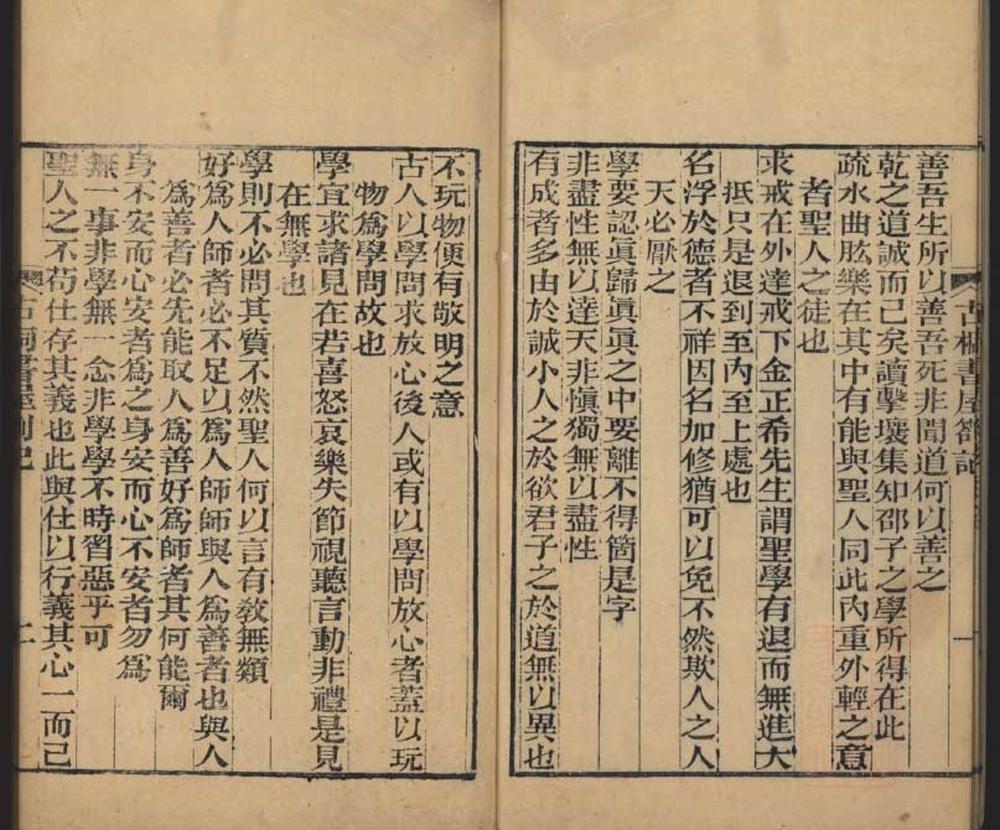 善吾生所以善吾死非聞道何以善之
乾之道誠而已矣讀擊壤集知邵子之學所得在此
疏水曲肱樂在其中有能與聖人同此內重外輕之意
者聖人之徒也
求戒在外達戒下金正希先生謂聖學有退而無進大
抵只是退到至內至上處也
名浮於德者不祥因名加修猶可以免不然欺人之人
天必厭之
學要認眞歸眞眞之中要離不得箇是字
非盡性無以達天非愼獨無以盡性
有成者多由於誠小人之於欲君子之於道無以異也
不玩物便有敬明之意
古人以學問求放心後人或有以學問放心者蓋以玩
物爲學問故也
學宜求諸見在若喜怒哀樂失節視聽言動非禮是見
在無學也
學則不必問其質不然聖人何以言有敎無類
好爲人師者必不足以爲人師師與人爲善者也與人
爲善者必先能取人爲善好爲師者其何能爾
身不安而心安者爲之身安而心不安者勿爲
無一事非學無一念非學學不時習惡乎可
聖人之不苟仕存其義也此與仕以行義其心一而已
二